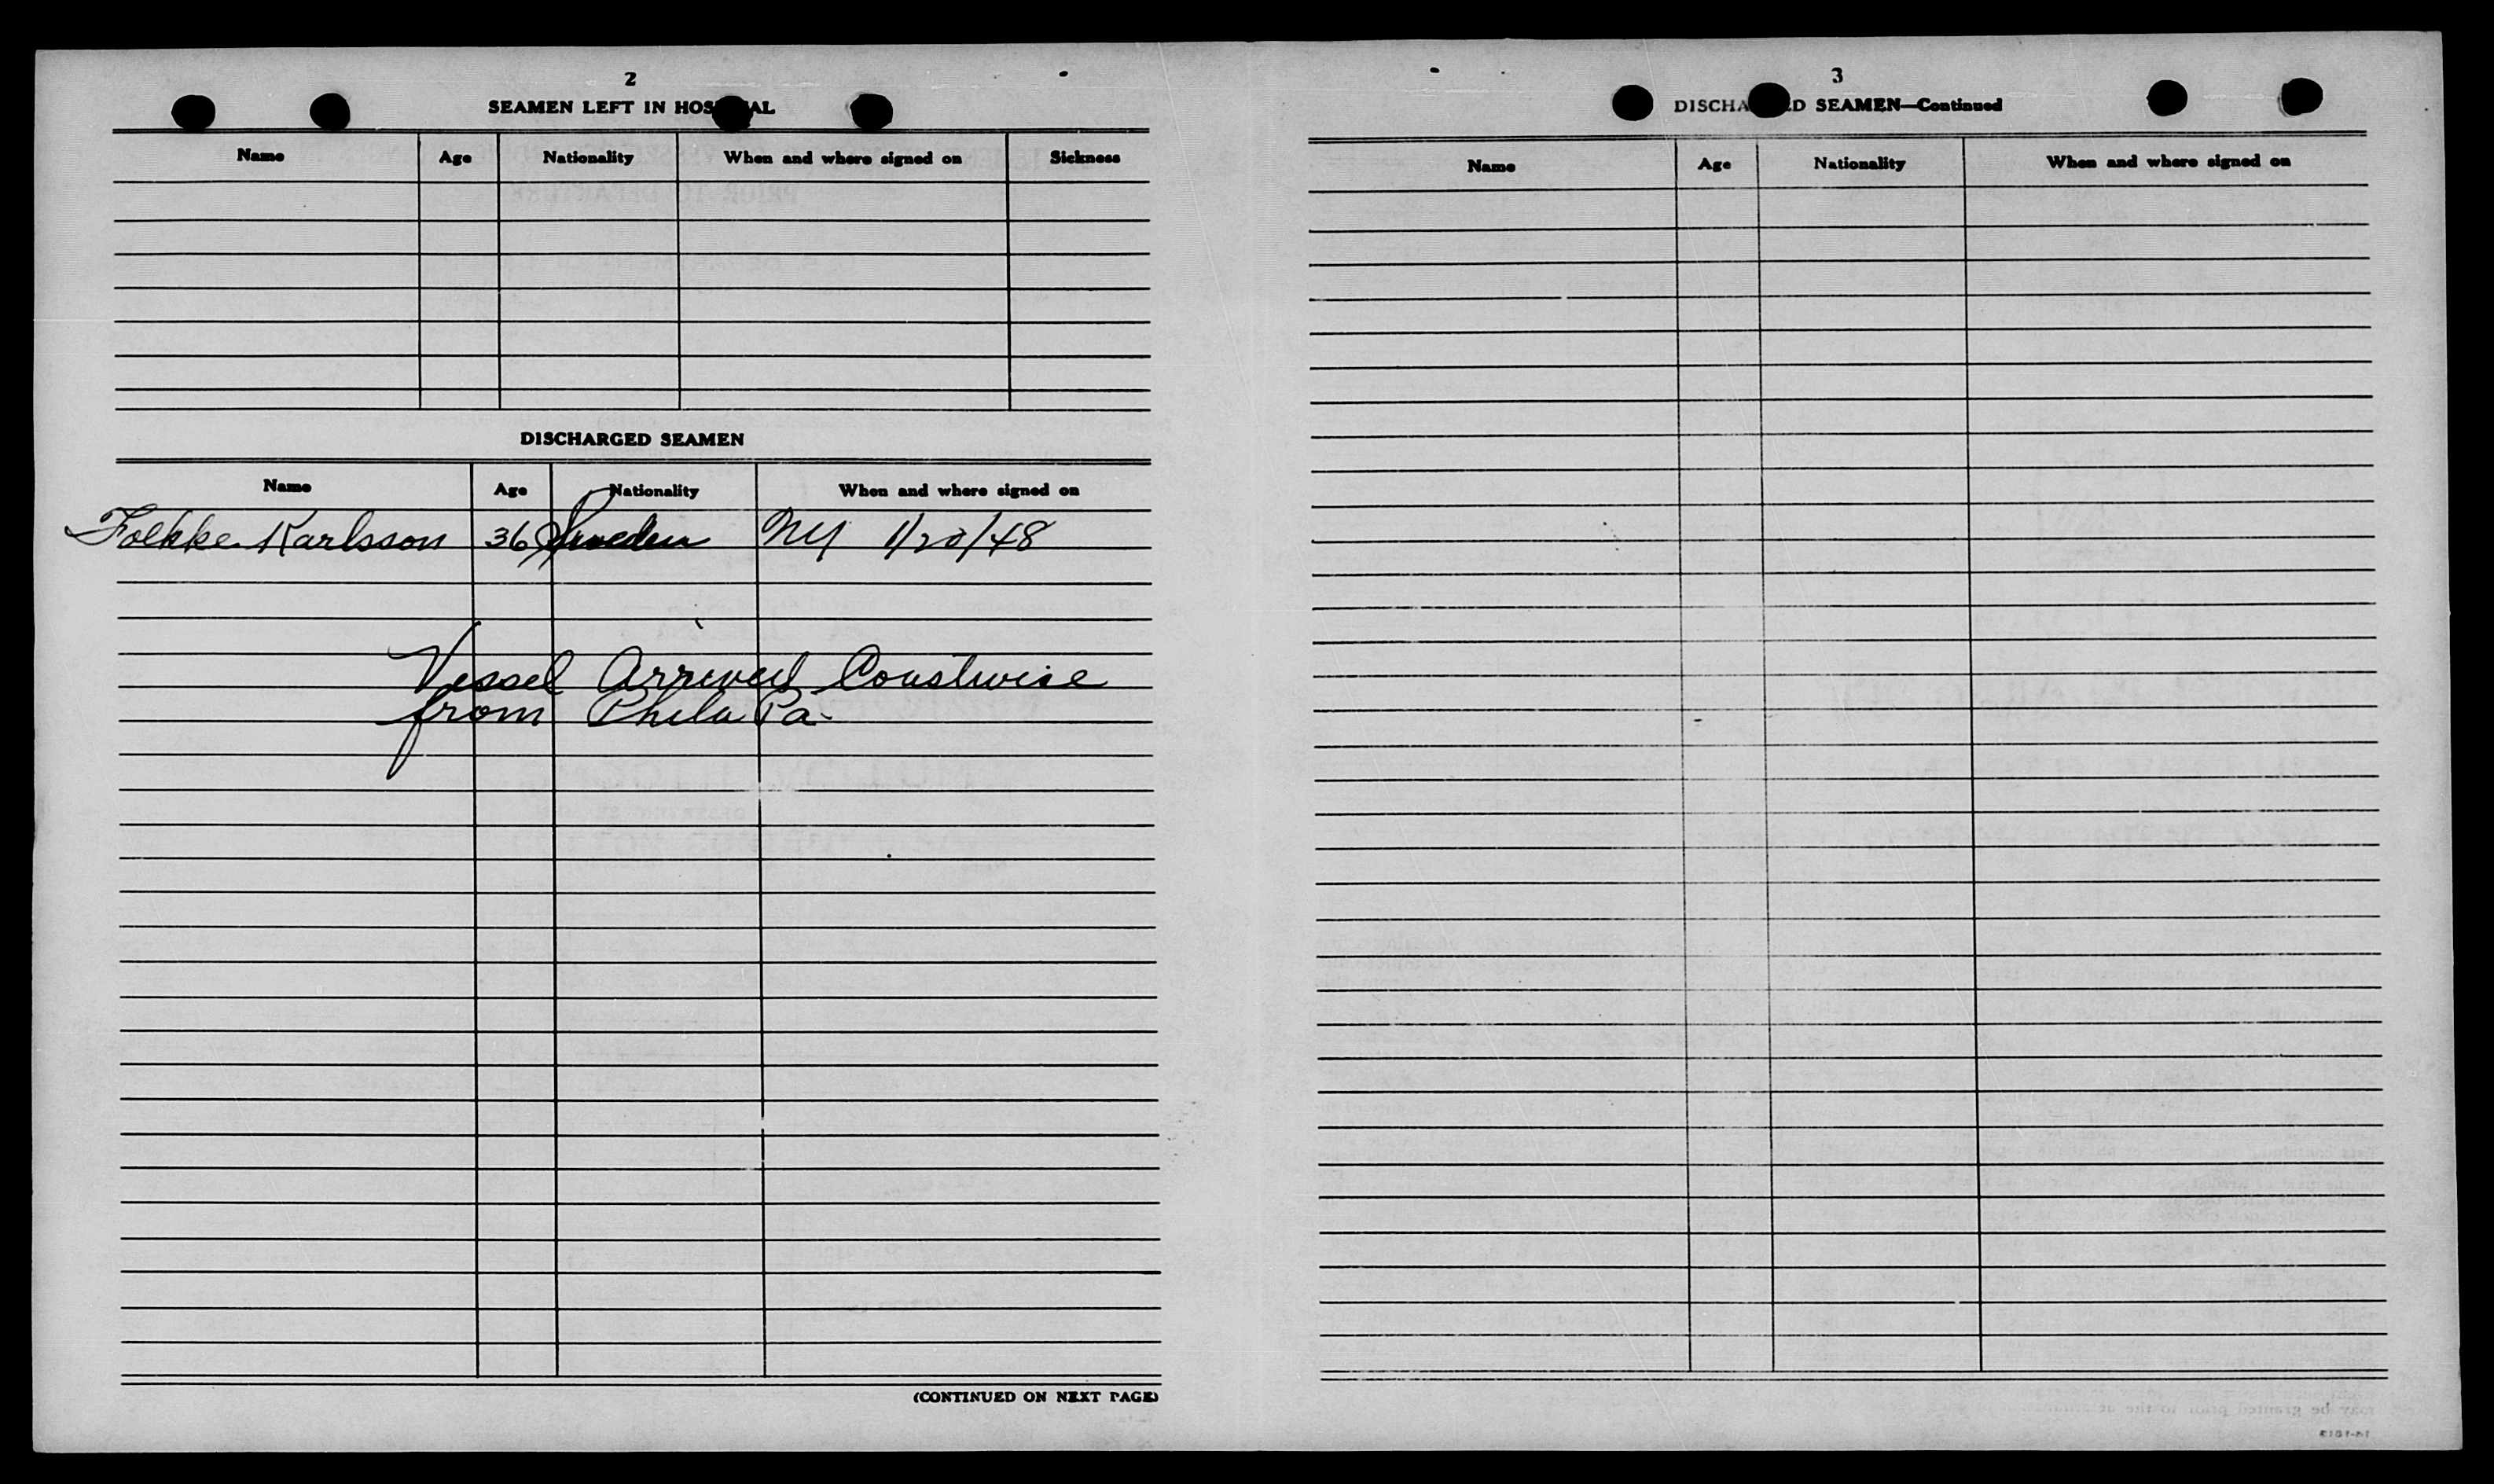 2
SEAMEN LEFT IN HOS AL
Name Age Nationality When and where signed on Sickness
DISCHARGED SEAMEN
Name Age Nationality When and where signed on
Folkke Karlsson 36 Sweden NY 1/20/48
Vessel Arrived Coastwise
from Phila Pa.
(CONTINUED ON NEXT PAGE)
3
DISCHA D SEAMEN—Continued
Name Age Nationality When and where signed on